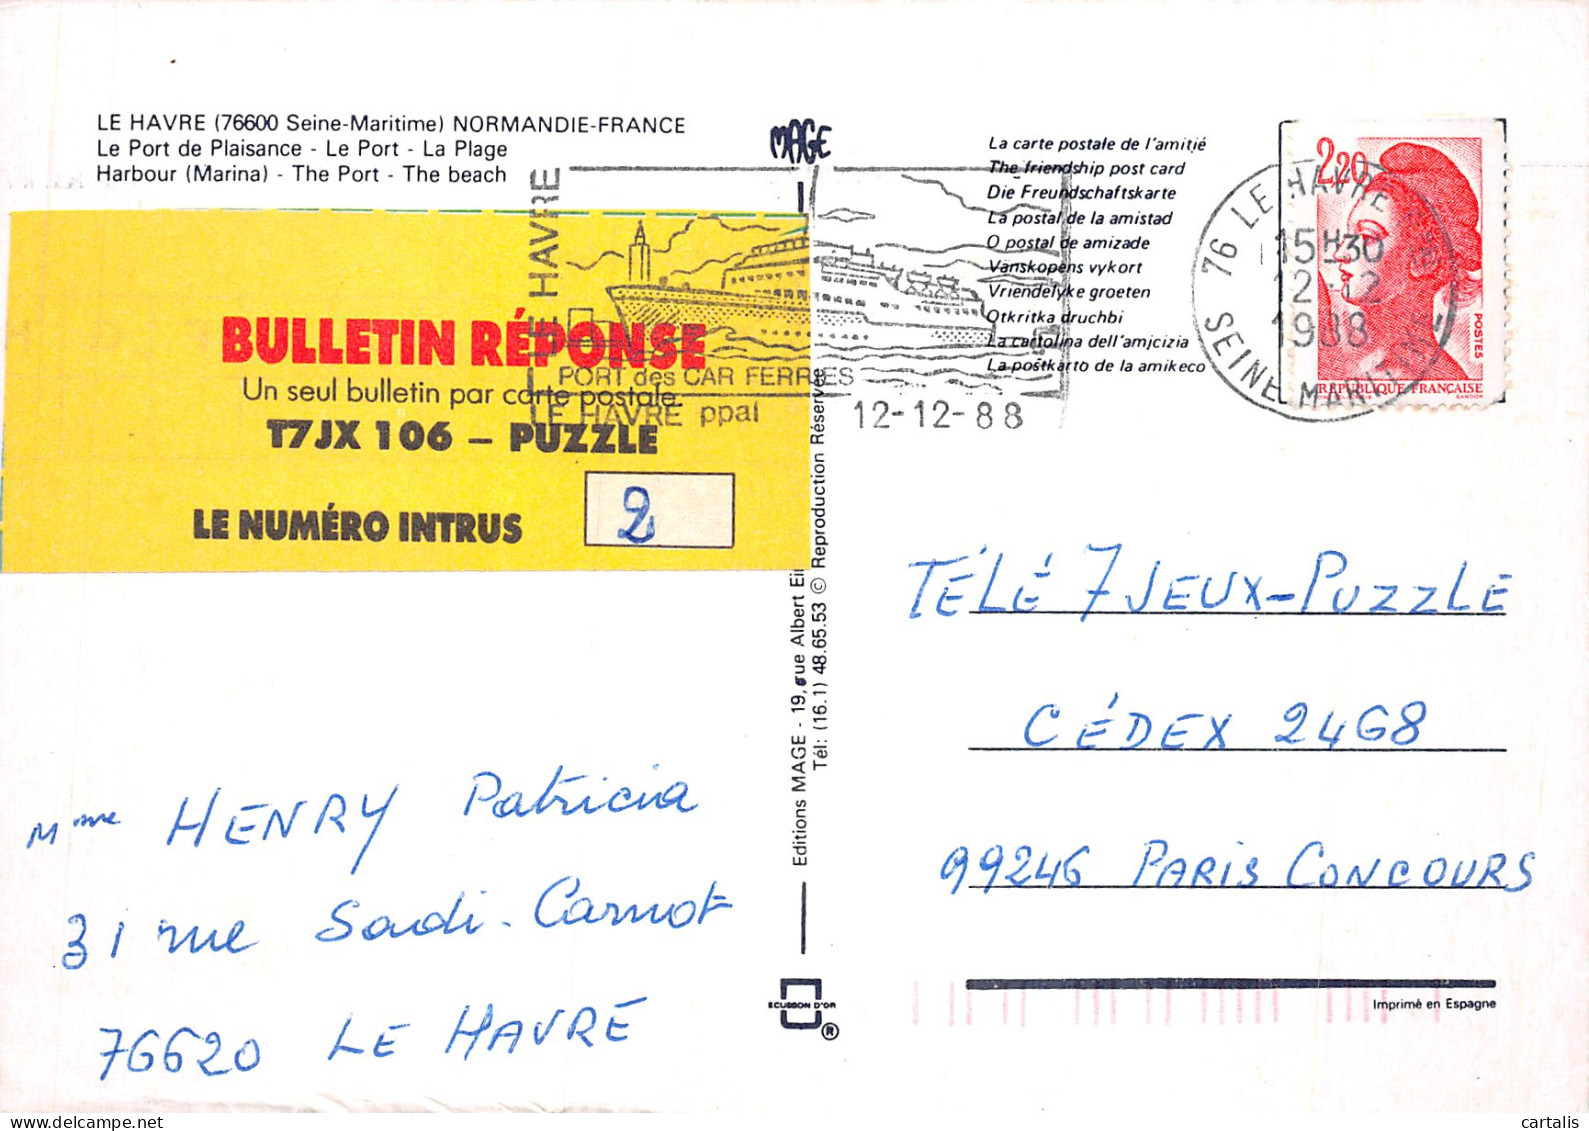 LE HAVRE (76600 Seine-Maritime) NORMANDIE-FRANCE
Le Port de Plaisance - Le Port - La Plage
Harbour (Marina) - The Port - The beach
MAGE
La carte postale de l'amitié
The friendship post card
Die Freundschaftskarte
La postal de la amistad
O postal de amizade
Vänskopens vykort
Vriendelyke groeten
Otkritka druchbi
La cartolina dell'amjcizia
La postkarto de la amikeco
2,20
POSTES
REPUBLIQUE FRANÇAISE
GANDON
76 LE HAVRE
15H30
12-12
1988
SEINE MARITIME
LE HAVRE
LE HAVRE
PORT des CAR FERRIES
LE HAVRE ppal
12-12-88
BULLETIN RÉPONSE
Un seul bulletin par carte postale.
T7JX 106 – PUZZLE
LE NUMÉRO INTRUS
2
Editions MAGE - 19, rue Albert
Tél: (16.1) 48.65.53 © Reproduction Réservée
TÉLÉ 7 JEUX-PUZZLE
CÉDEX 2468
99246 PARIS CONCOURS
Mme HENRY Patricia
31 rue Sadi-Carnot
76620 LE HAVRE
ECUSSON D'OR
®
Imprimé en Espagne
cartalis
www.delcampe.net